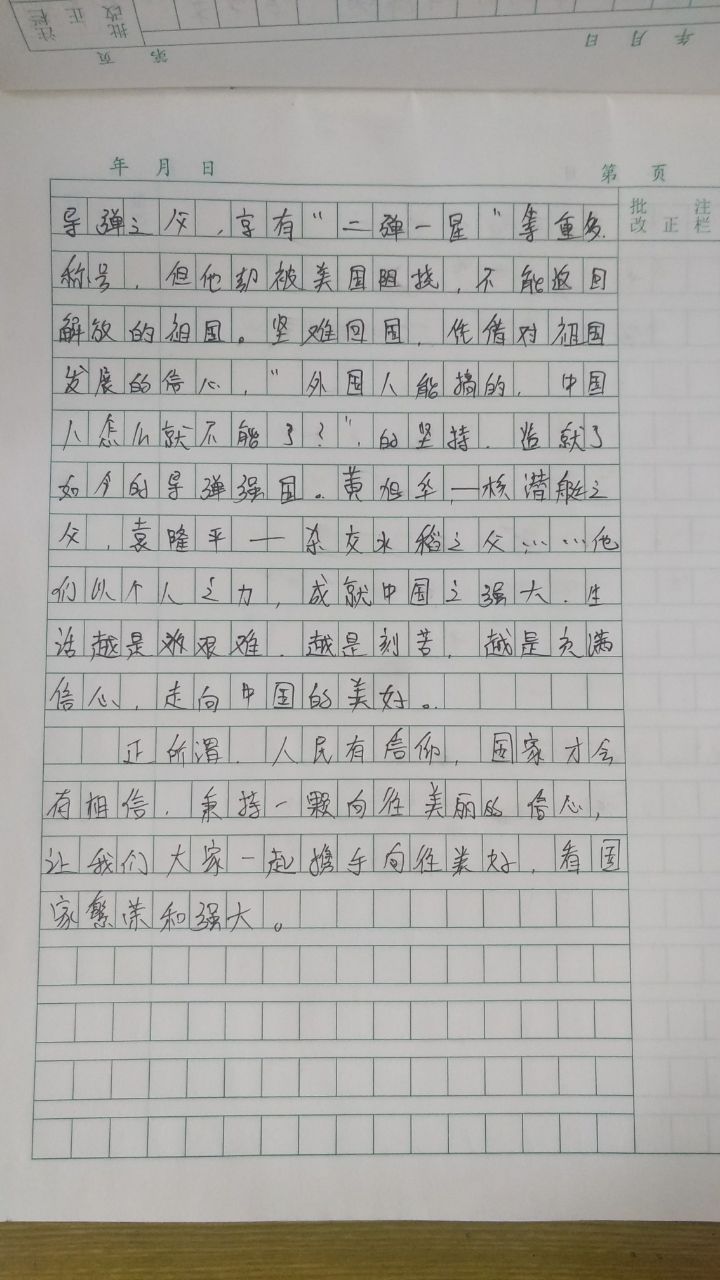 批改 正 注栏
第 页
年 月 日
年 月 日
第 页
批改 正 注栏
导弹之父,享有“二弹一星”等重多
称号,但他却被美国阻挠,不能返回
解放的祖国。坚难回国,凭借对祖国
发展的信心,“外国人能搞的,中国
人怎么就不能了?”,的坚持,造就了
如今的导弹强国。黄旭华—核潜艇之
父,袁隆平—杂交水稻之父……他
们以个人之力,成就中国之强大,生
活越是艰难,越是刻苦,越是充满
信心,走向中国的美好。
正所谓,人民有信仰,国家才会
有相信,秉持一颗向往美丽的信心,
让我们大家一起携手向往美好,看国
家繁荣和强大。